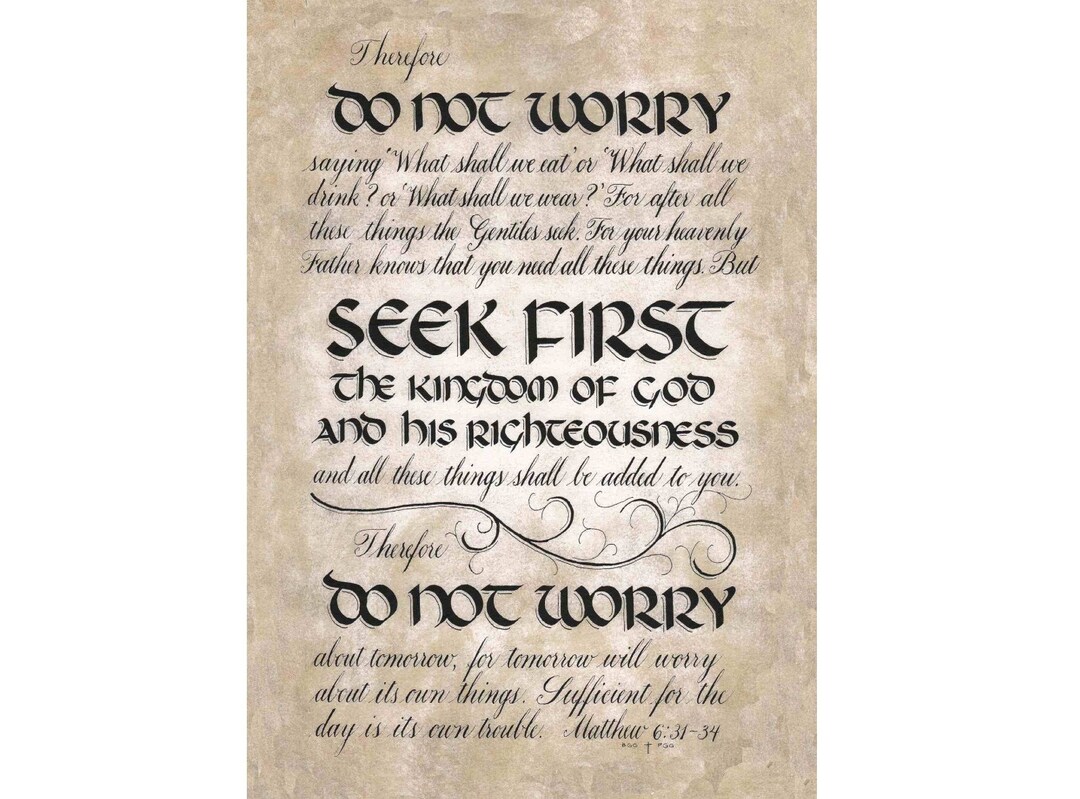 Therefore
DO NOT WORRY
saying 'What shall we eat' or 'What shall we
drink? or 'What shall we wear?' For after all
these things the Gentiles seek. For your heavenly
Father knows that you need all these things. But
SEEK FIRST
THE KINGDOM OF GOD
AND HIS RIGHTEOUSNESS
and all these things shall be added to you.
Therefore
DO NOT WORRY
about tomorrow, for tomorrow will worry
about its own things. Sufficient for the
day is its own trouble. Matthew 6:31-34